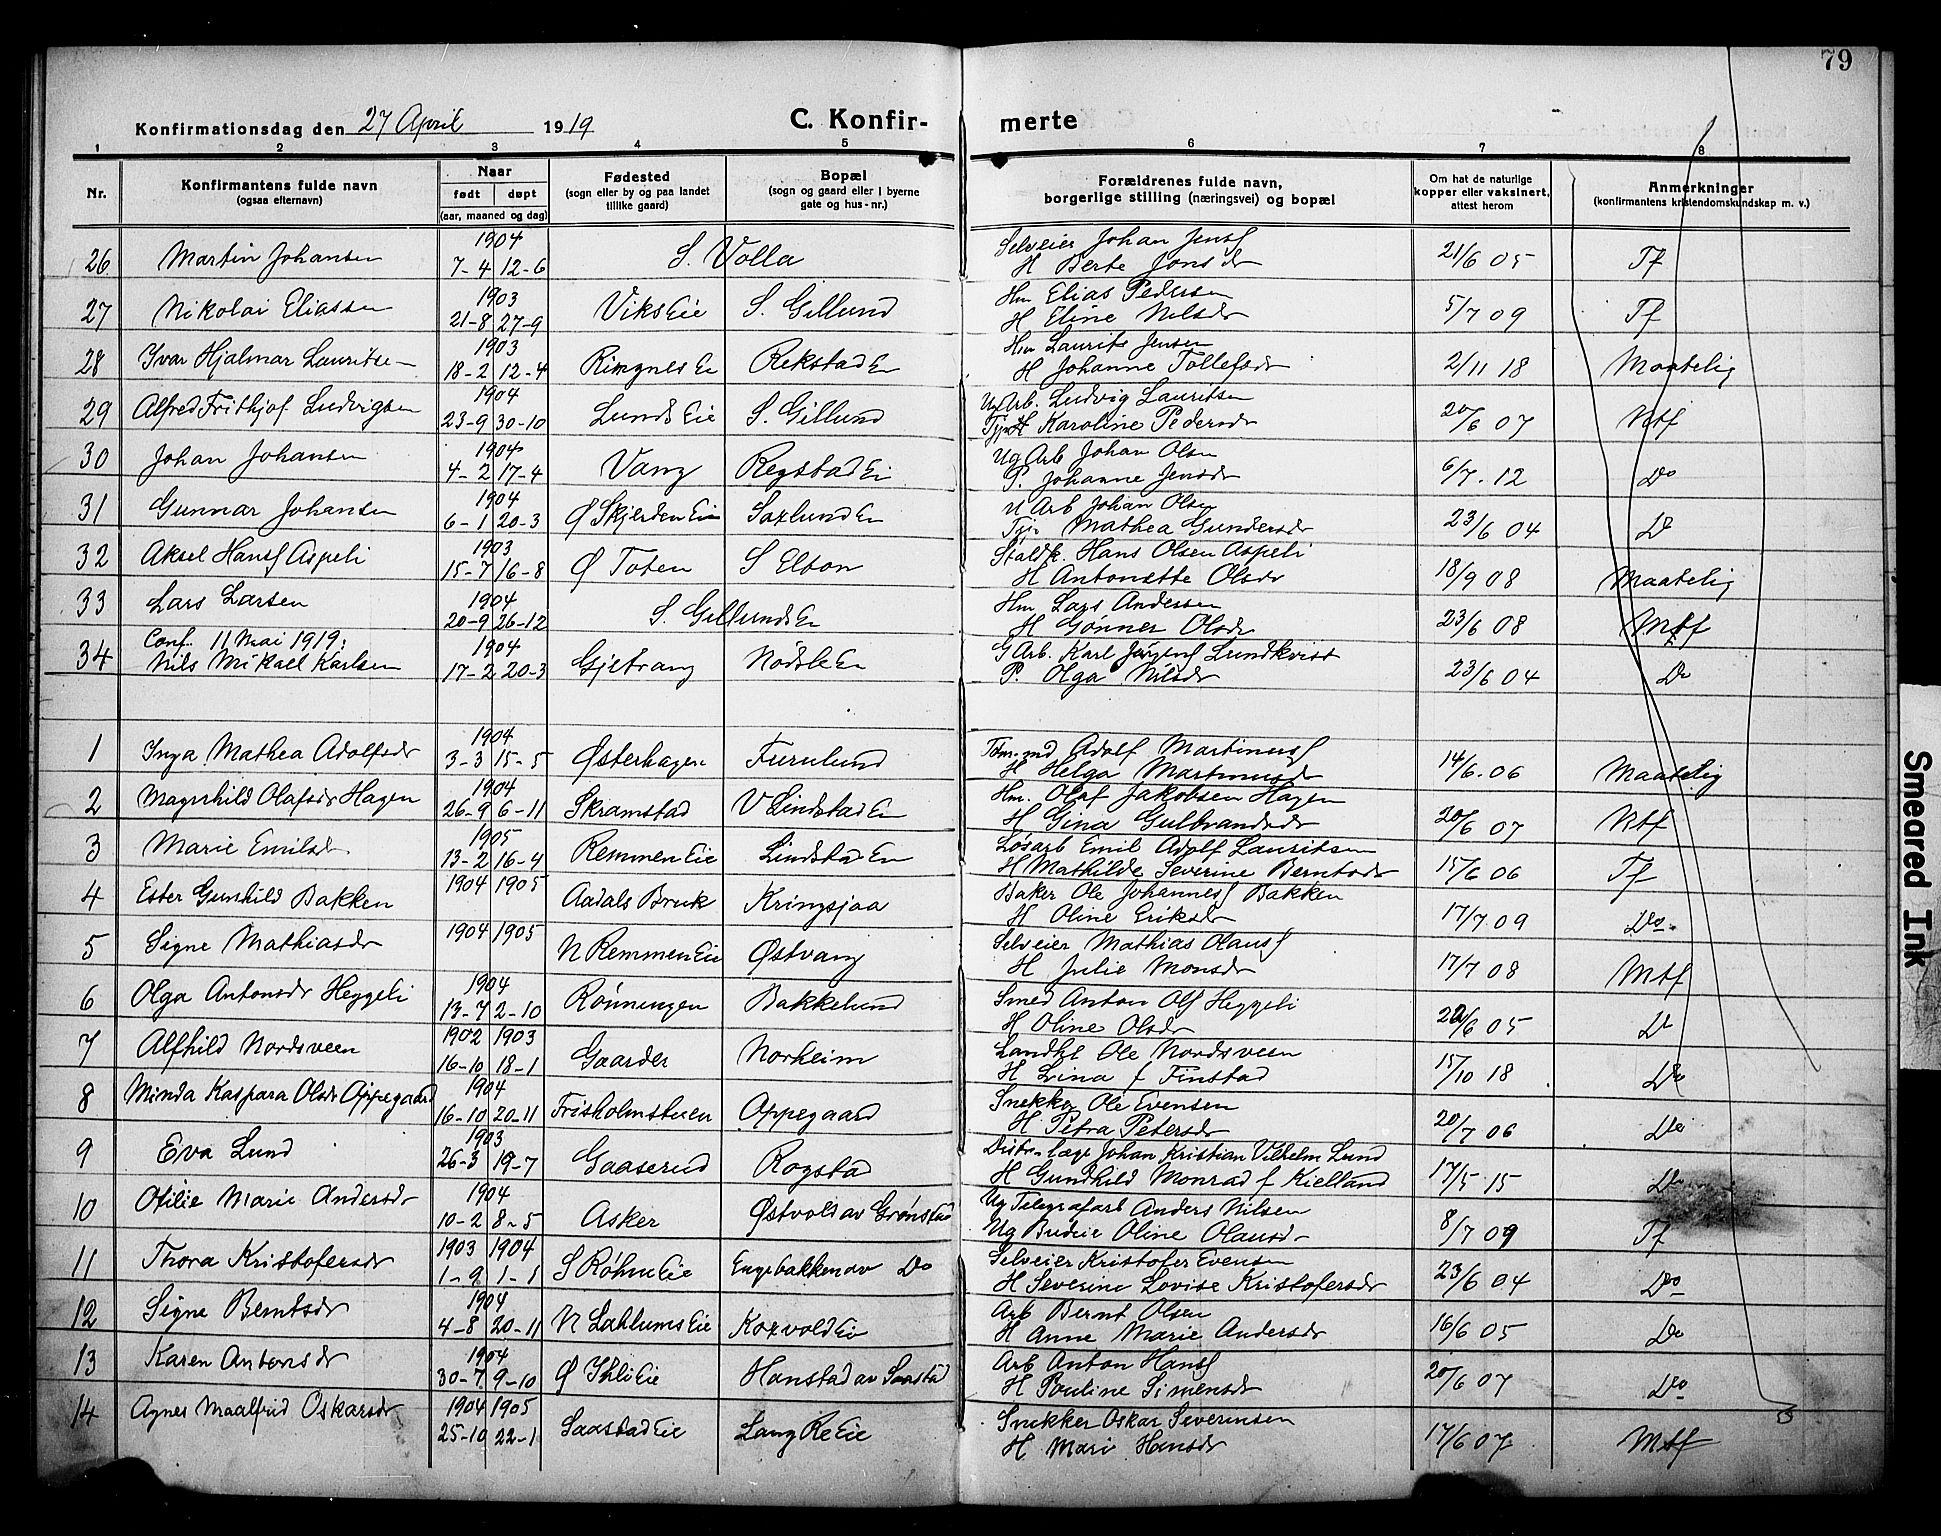 79
Konfirmationsdag den 27 April 1919 C. Konfir- merte
1 2 3 4 5 6 7 8
Nr. Konfirmantens fulde navn (ogsaa efternavn) Naar født døpt (aar, maaned og dag) Fødested (sogn eller by og paa landet tillike gaard) Bopæl (sogn og gaard eller i byerne gate og hus-nr.) Forældrenes fulde navn, borgerlige stilling (næringsvei) og bopæl Om hat de naturlige kopper eller vaksinert, attest herom Anmerkninger (konfirmantens kristendomskundskap m. v.)
1904 Selveier Johan Jensf
26 Martin Johansen 7-4 12-6 S. Volla H Berte Jonsdr 21/6 05 Tf
1903 Hm Elias Pedersen
27 Nikolai Eliassen 21-8 27-9 Viks Eie S. Gillund H Eline Nilsdr 5/7 09 Tf
1903 Hm Laurits Jensen
28 Ivar Hjalmar Lauritse- 18-2 12-4 Rimgnes Ei Rekstad Ei H Johanne Tollefsdr 2/11 18 Maatelig
1904 Ug Arb. Ludvig Lauritsen
29 Alfred Frithjof Ludvigsen 23-9 30-10 Lunds Eie S. Gillund H Karoline Pedersdr 20/6 07 Mtf
1904 Ug Arb Johan Olsen
30 Johan Johansen 4-2 17-4 Vang Rogstad Ei P. Johanne Jensdr 6/7. 12 Do
1904 U Arb Johan Olsen
31 Gunnar Johansen 6-1 20-3 Ø Skjerden Eie Saxlund Ei Mathea Gundersdr 23/6 04 Do
1903 Staldk. Hans Olsen Aspeli
32 Aksel Hansf Aspeli 15-7 16-8 Ø Toten S Elton H Antonette Olsdr 18/9 08 Maatelig
1904 Hm Lars Andersen
33 Lars Larsen 20-9 26-12 S. Gillunds Ei H Gønner Olsdr 23/6 08 Mtf
Conf. 11 Mai 1919: 1904 G Arb. Karl Jørgensf Lundkvist
34 Nils Mikael Karlsen 17-2 20-3 Gjetvang Nødsle Ei P. Olga Nilsdr 23/6 04 Do
1904 Tømmermd Adolf Martinusf
1 Inga Mathea Adolfsdr 3-3 15-5 Østerhagen Furulund H Helga Martinusdr 14/6. 06 Maatelig
1904 Hm. Olaf Jakobsen Hagen
2 Magnhild Olafsdr Hagen 26-9 6-11 Skramstad V Lindstad Ei H Gina Gulbrandsdr 20/6 07 Mtf
1905 Løsarb Emil Adolf Lauritsen
3 Marie Emilsdr 13-2 16-4 Remmen Eie Lindstad Ei H Mathilde Severine Berntsdr 15/6 06 Tf
1904 1905 Baker Ole Johannesf Bakken
4 Ester Gunhild Bakken Aadals Bruk Kringsjaa H Oline Eriksdr 17/7 09 Do
1904 1905 Selveier Mathias Olausf
5 Signe Mathiasdr N Remmen Eie Østvang H Julie Monsdr 17/7 08 Mtf
1904 Smed Anton Olsf Heggeli
6 Olga Antonsdr Heggeli 13-7 2-10 Rønningen Bakkelund H Oline Olsdr 20/6 05 Do
1902 1903 Landh Ole Nordsveen
7 Alfhild Nordsveen 16-10 18-1 Gaarder Norheim H Lina f Finstad 15/10 18 Do
1904 Snekker Ole Evensen
8 Minda Kaspara Olsdr Oppegaard 16-10 20-11 Frisholmstuen Oppegaard H. Petra Petersdr 20/7 06 Do
1903 Distr.læge Johan Kristian Vilhelm Lund
9 Eva Lund 26-3 19-7 Gaaserud Rogstad H Gundhild Monrad f Kielland 17/5 15 Do
1904 Ug Telegrafarb Anders Nilsen
10 Otilie Marie Andersdr 10-2 8-5 Asker Østvold av Grønstad Ug Budeie Oline Olausdr 8/7 09 Tf
1903 1904 Selveier Kristofer Evensen
11 Thora Kristofersdr 1-9 1-1 S Røhne Eie Engebakken av Do H Severine Lovise Kristofersdr 23/6 04 Do
1904 Arb Bernt Olsen
12 Signe Berntsdr 4-8 20-11 N Lahlums Eie Koxvold Ei H Anne Marie Andersdr 16/6 05 Do
1904 Arb Anton Hansf
13 Karen Antonsdr 30-7 9-10 Ø Ihli Eie Hanstad av Saastad H Pauline Simensdr 20/6 07 Do
1904 1905 Snekker Oskar Severinsen
14 Agnes Maalfrid Oskarsdr 25-10 22-1 Saastad Eie Lang Re Eie H Mari Hansdr 17/6 07 Mtf
Smeared Ink